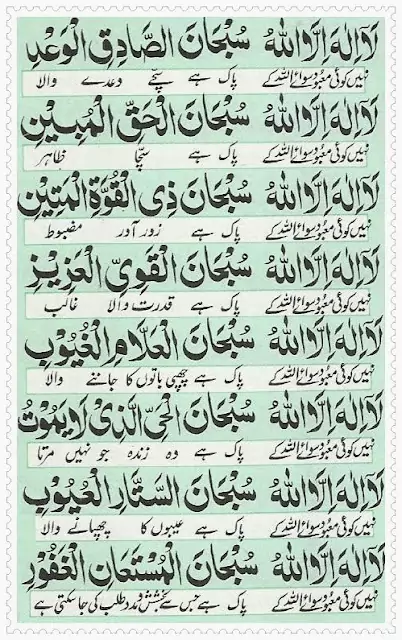 لَا اِلٰهَ اِلَّا اللّٰهُ سُبْحَانَ الصَّادِقِ الْوَعْدِ
نہیں کوئی معبود سوائے اللہ کے پاک ہے سچّے وعدے والا
لَا اِلٰهَ اِلَّا اللّٰهُ سُبْحَانَ الْحَقِّ الْمُبِيْنِ
نہیں کوئی معبود سوائے اللہ کے پاک ہے سچّا ظاہر
لَا اِلٰهَ اِلَّا اللّٰهُ سُبْحَانَ ذِى الْقُوَّةِ الْمَتِيْنِ
نہیں کوئی معبود سوائے اللہ کے پاک ہے زور آور مضبوط
لَا اِلٰهَ اِلَّا اللّٰهُ سُبْحَانَ الْقَوِىِّ الْعَزِيْزِ
نہیں کوئی معبود سوائے اللہ کے پاک ہے قدرت والا غالب
لَا اِلٰهَ اِلَّا اللّٰهُ سُبْحَانَ الْعَلَّامِ الْغُيُوْبِ
نہیں کوئی معبود سوائے اللہ کے پاک ہے چھپی باتوں کا جاننے والا
لَا اِلٰهَ اِلَّا اللّٰهُ سُبْحَانَ الْحَىِّ الَّذِىْ لَا يَمُوْتُ
نہیں کوئی معبود سوائے اللہ کے پاک ہے وہ زندہ جو نہیں مرتا
لَا اِلٰهَ اِلَّا اللّٰهُ سُبْحَانَ السَّتَّارِ الْعُيُوْبِ
نہیں کوئی معبود سوائے اللہ کے پاک ہے عیبوں کا چھپانے والا
لَا اِلٰهَ اِلَّا اللّٰهُ سُبْحَانَ الْمُسْتَعَانِ الْغَفُوْرِ
نہیں کوئی معبود سوائے اللہ کے پاک ہے جس سے بخشش و مدد طلب کی جا سکتی ہے